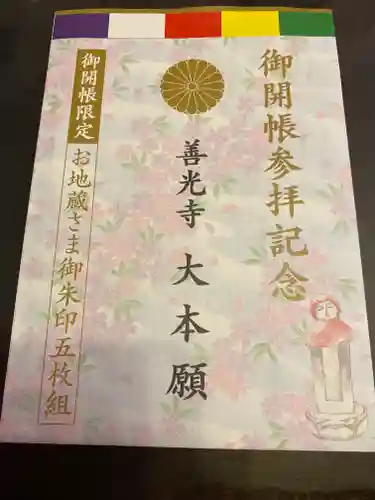 御開帳参拝記念
善光寺 大本願
御開帳限定
お地蔵さま御朱印五枚組